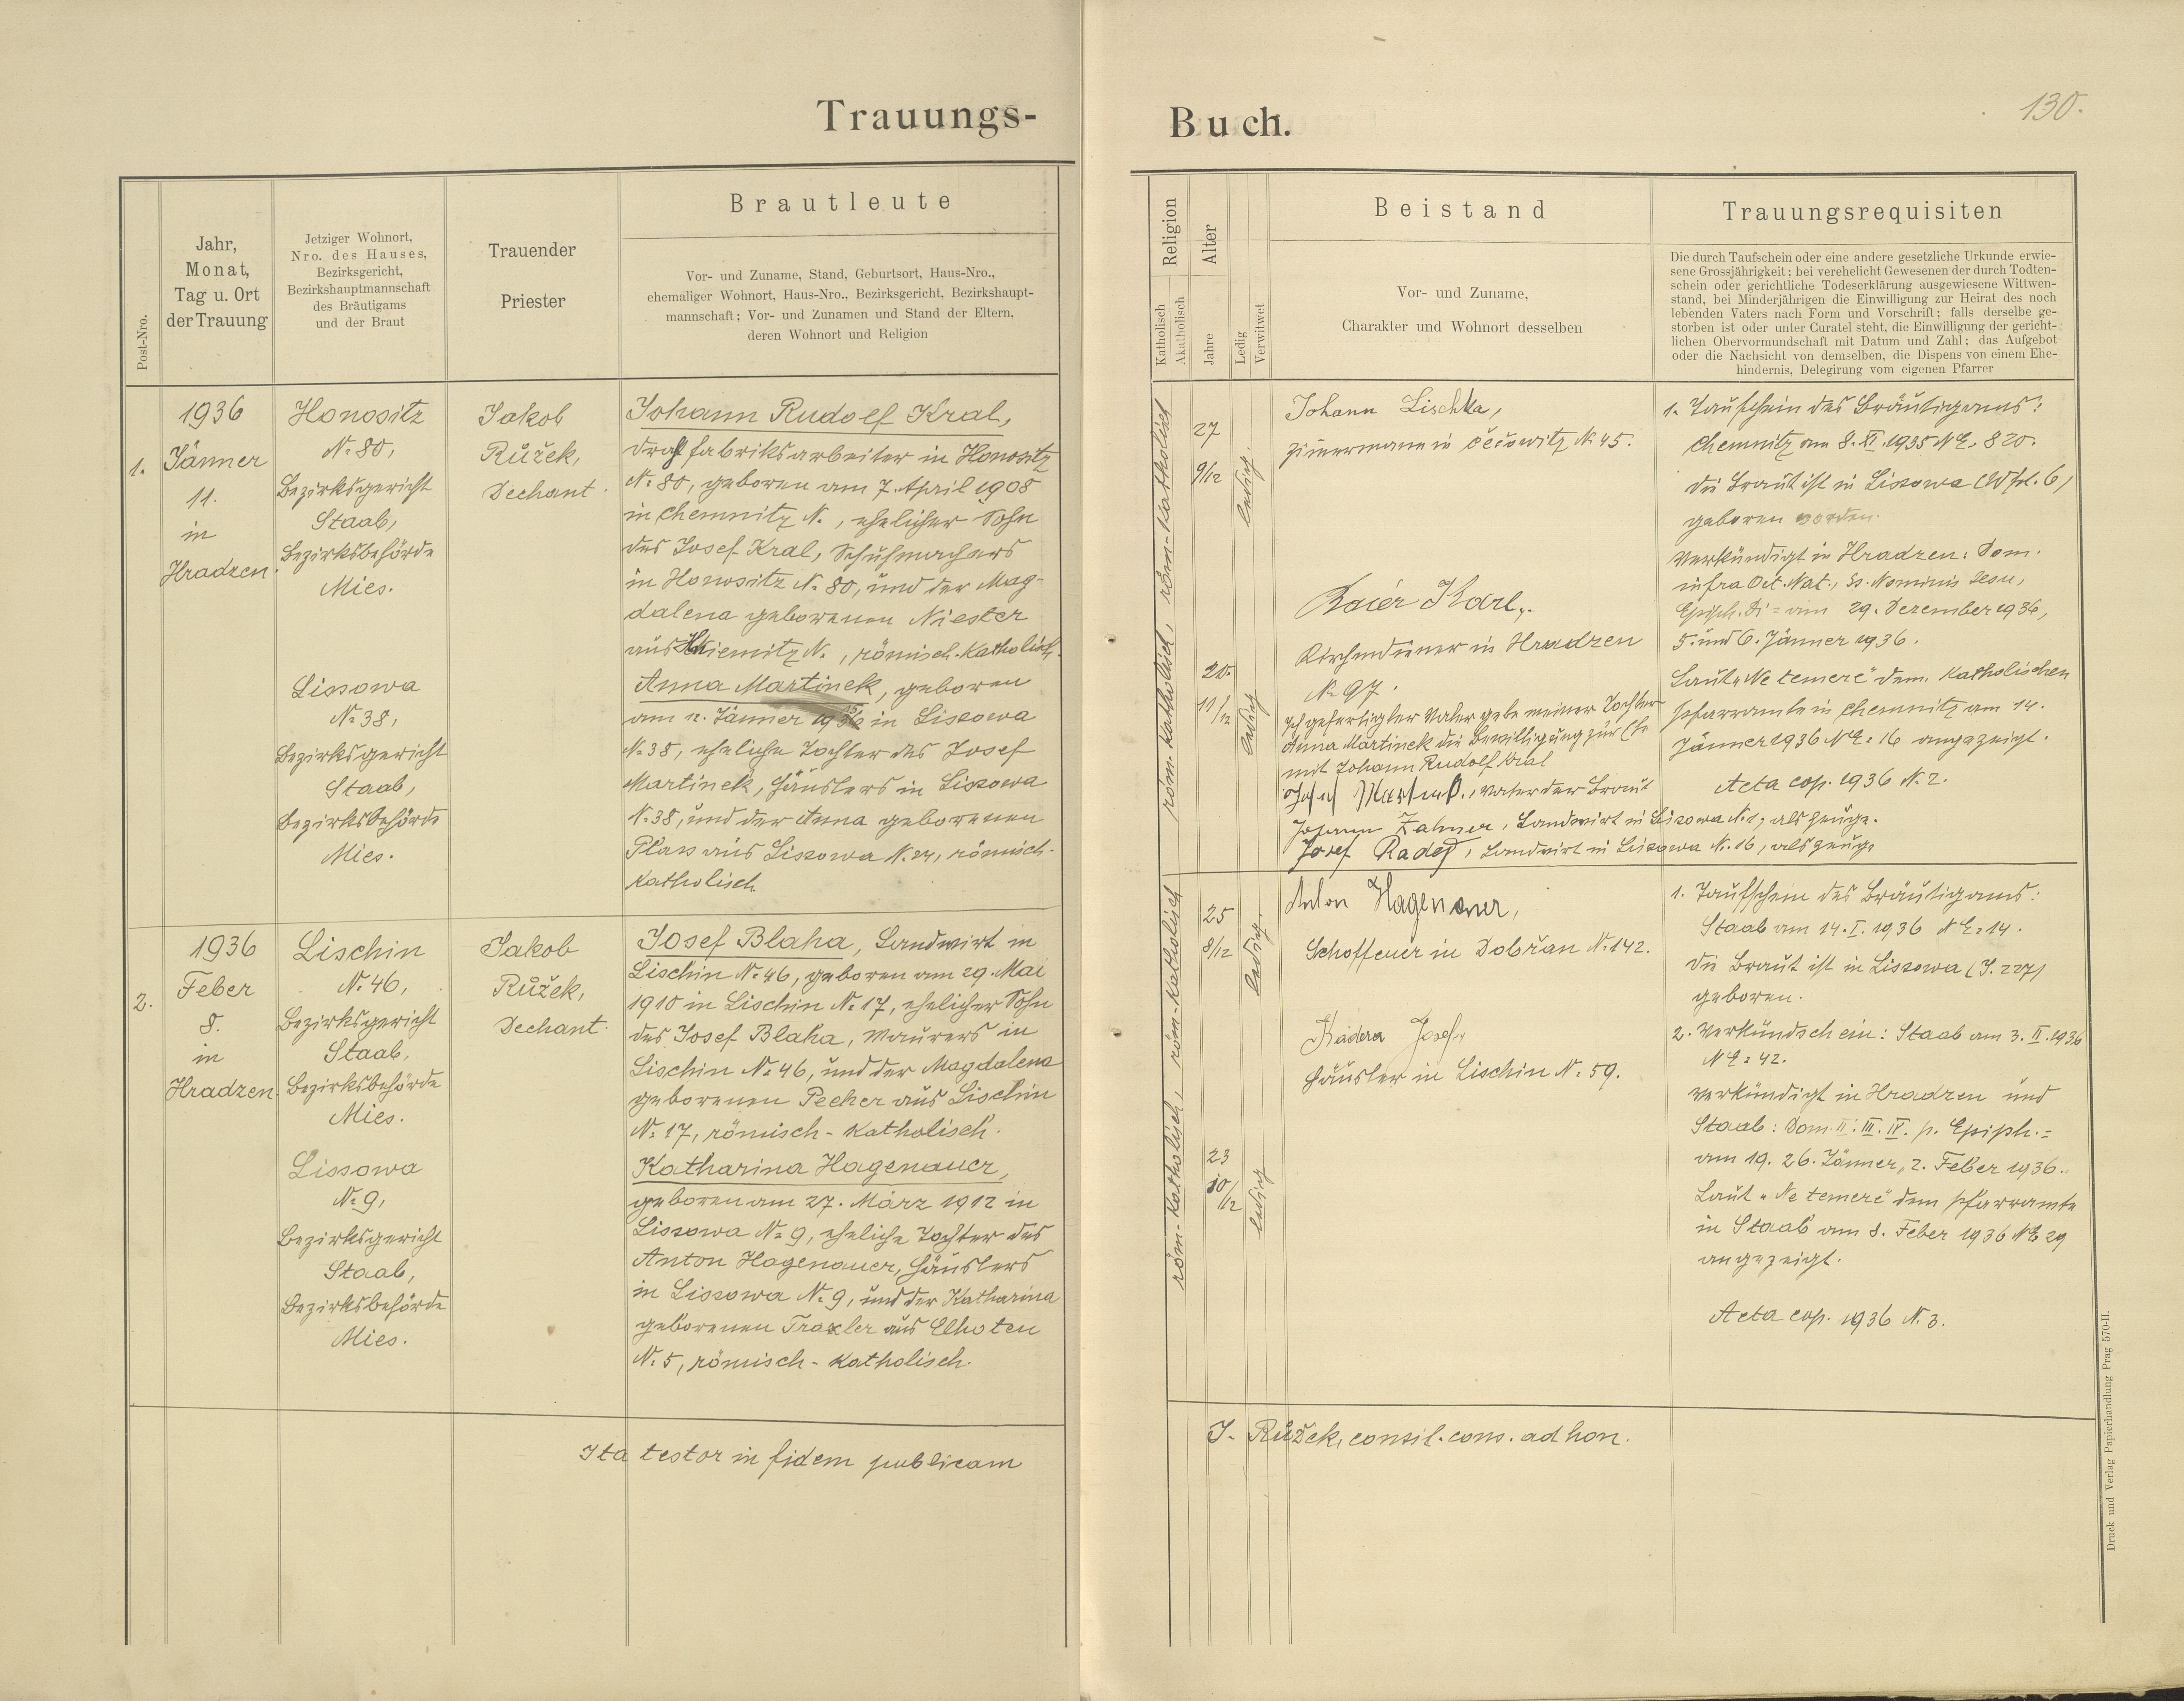 Trauungs-
Buch.
130.
Post-Nro.
Jahr,
Monat,
Tag u. Ort
der Trauung
Jetziger Wohnort,
Nro. des Hauses,
Bezirksgericht,
Bezirkshauptmannschaft
des Bräutigams
und der Braut
Trauender
Priester
Brautleute
Vor- und Zuname, Stand, Geburtsort, Haus-Nro.,
ehemaliger Wohnort, Haus-Nro., Bezirksgericht, Bezirkshaupt-
mannschaft; Vor- und Zunamen und Stand der Eltern,
deren Wohnort und Religion
Religion
Katholisch
Akatholisch
Alter
Jahre
Ledig
Verwitwet
Beistand
Vor- und Zuname,
Charakter und Wohnort desselben
Trauungsrequisiten
Die durch Taufschein oder eine andere gesetzliche Urkunde erwie-
sene Grossjährigkeit; bei verehelicht Gewesenen der durch Todten-
schein oder gerichtliche Todeserklärung ausgewiesene Wittwen-
stand, bei Minderjährigen die Einwilligung zur Heirat des noch
lebenden Vaters nach Form und Vorschrift; falls derselbe ge-
storben ist oder unter Curatel steht, die Einwilligung der gericht-
lichen Obervormundschaft mit Datum und Zahl; das Aufgebot
oder die Nachsicht von demselben, die Dispens von einem Ehe-
hindernis, Delegirung vom eigenen Pfarrer
1.
1936
Jänner
11.
in
Hradzen.
Honositz
N. 80,
Bezirksgericht
Staab,
Bezirksbehörde
Mies.
Lissowa
N. 38,
Bezirksgericht
Staab,
Bezirksbehörde
Mies.
Jakob
Růžek,
Dechant.
Johann Rudolf Kral,
Drahtfabriksarbeiter in Honositz
N. 80, geboren am 7. April 1908
in Chemnitz N., ehelicher Sohn
des Josef Kral, Schuhmachers
in Honositz N. 80, und der Mag-
dalena geborenen Niester
aus N., römisch-katholisch.
Anna Martinek, geboren
am 12. Jänner in Lissowa
N. 38, eheliche Tochter des Josef
Martinek, Häuslers in Lissowa
N. 38, und der Anna geborenen
Plass aus Lissowa N. 24, römisch-
katholisch
röm.-katholisch, röm-katholisch
27
9/12
ledig.
20.
11/12
ledig
Johann Lischka,
Zimmermann in Čečowitz N. 45.
Baier Karl,
Kirchendiener in Hradzen
N. 97.
Ich gefertigter Vater gebe meiner Tochter
Anna Martinek die Bewilligung zur Ehe
mit Johann Rudolf Kral
Josef Martinek, Vater der Braut
Johann Zahner, Landwirt in Lissowa N. 1, als Zeuge.
Josef Rades, Landwirt in Lissowa N. 16, als Zeuge
1. Taufschein des Bräutigams:
Chemnitz am 8. XI. 1935 NE. 820.
Die Braut ist in Lissowa fol. 6)
geboren worden.
Verkündigt in Hradzen: Dom.
infra Oct. Nat., Ss. Nominis Jesu,
Epiph. Di = am 29. Dezember 1936,
5. und 6. Jänner 1936.
Laut „Ne temere" dem katholischen
Pfarramte in Chemnitz am 14.
Jänner 1936 NE. 16 angezeigt.
Acta cop. 1936 N. 2.
2.
1936
Feber
8.
in
Hradzen.
Lischin
N. 46,
Bezirksgericht
Staab,
Bezirksbehörde
Mies.
Lissowa
N. 9,
Bezirksgericht
Staab,
Bezirksbehörde
Mies.
Jakob
Růžek,
Dechant.
Josef Blaha, Landwirt in
Lischin N. 46, geboren am 29. Mai
1910 in Lischin N. 17, ehelicher Sohn
des Josef Blaha, Maurers in
Lischin N. 46, und der Magdalena
geborenen Pecher aus Lischin
N. 17, römisch-katholisch.
Katharina Hagenauer,
geboren am 27. März 1912 in
Lissowa N. 9, eheliche Tochter des
Anton Hagenauer, Häuslers
in Lissowa N. 9, und der Katharina
geborenen Traxler aus Elhoten
N. 5, römisch-katholisch.
röm-katholisch, röm-katholisch
25
8/12
ledig.
23
10/12
ledig
Anton Hagenauer,
Schoffeur in Dobřan N. 142.
Kadera Josef,
Häusler in Lischin N. 59.
1. Taufschein des Bräutigams:
Staab am 14. I. 1936 NE. 14.
Die Braut ist in Lissowa (J. 227)
geboren.
2. Verkündschein: Staab am 3. II. 1936
NE. 42.
Verkündigt in Hradzen und
Staab: Dom. II. III. IV. p. Epiph. =
am 19. 26. Jänner, 2. Feber 1936.
Laut „Ne temere" dem Pfarramte
in Staab am 8. Feber 1936 NE 29
angezeigt.
Acta cop. 1936 N. 3.
Ita testor in fidem publicam
J. Růžek, consil. cons. ad hon.
Druck und Verlag Papierhandlung Prag 570-II.